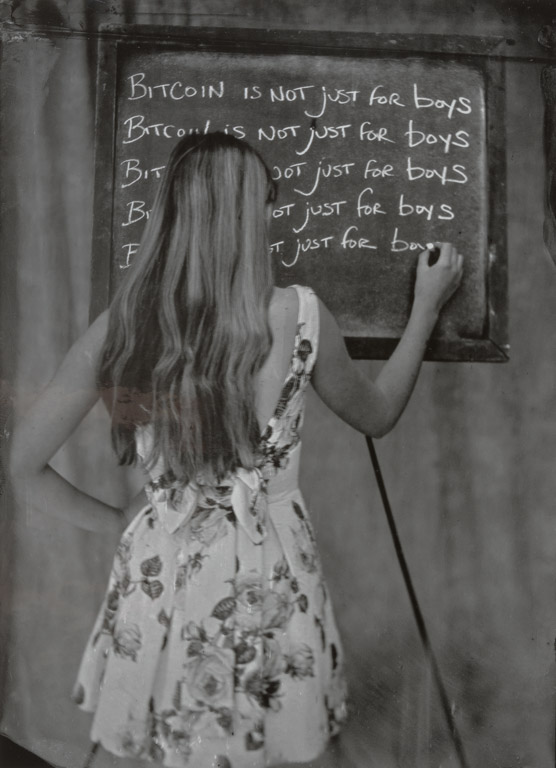 BITCOIN IS NOT JUST FOR boys
BITCOIN is NOT JUST FOR boys
BIT NOT JUST FOR boys
JUST FOR boys
JUST for